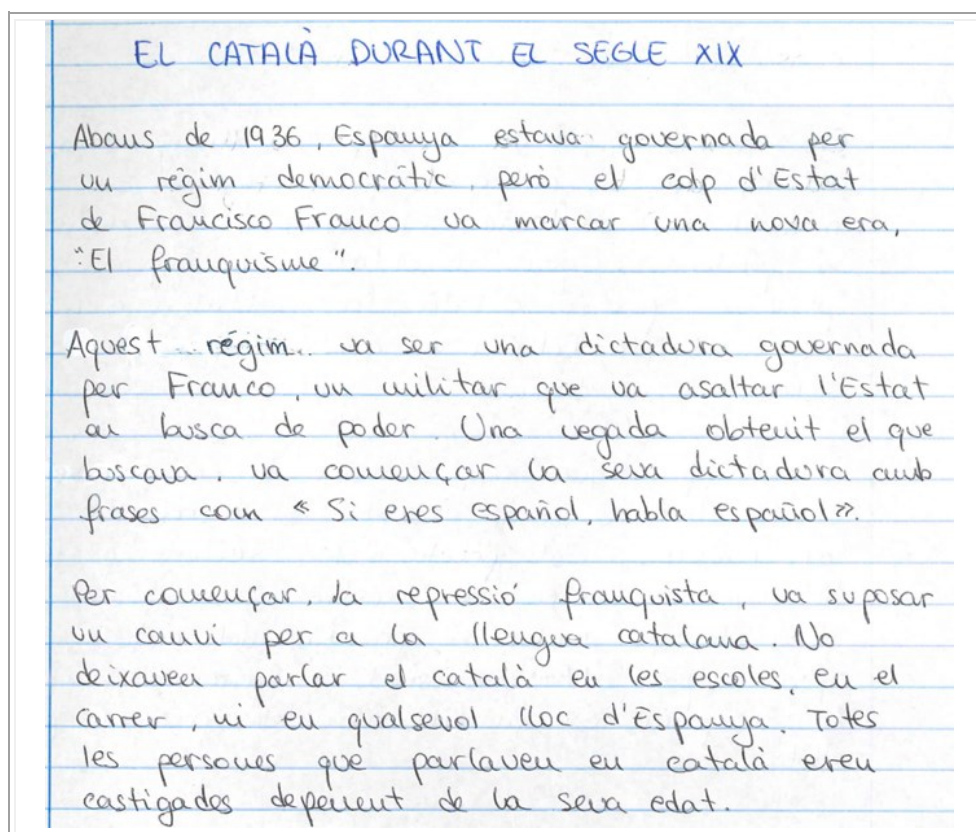 EL CATALÀ DURANT EL SEGLE XIX
Abans de 1936, Espanya estava governada per
un règim democràtic, però el colp d'Estat
de Francisco Franco va marcar una nova era,
"El franquisme".
Aquest régim va ser una dictadura governada
per Franco, un militar que va asaltar l'Estat
en busca de poder. Una vegada obtenit el que
buscava, va començar la seva dictadura amb
frases com « Si eres español, habla español».
Per començar, la repressió franquista, va suposar
un canvi per a la llengua catalana. No
deixaven parlar el català en les escoles, en el
carrer, ni en qualsevol lloc d'Espanya. Totes
les persones que parlaven en català eren
castigades depenent de la seva edat.